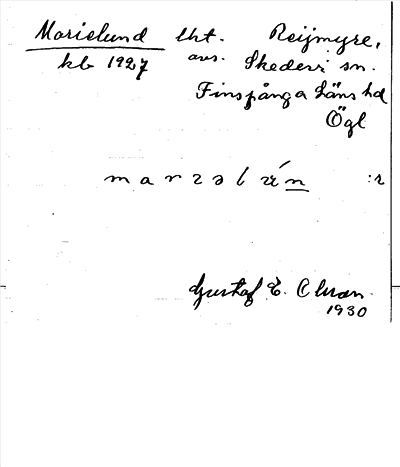 Marielund lht. Reijmyre,
kb 1927 avs. Skedevi sn.
Finspånga Läns hd
Ögl
:r
Gustaf E. Olson
1930